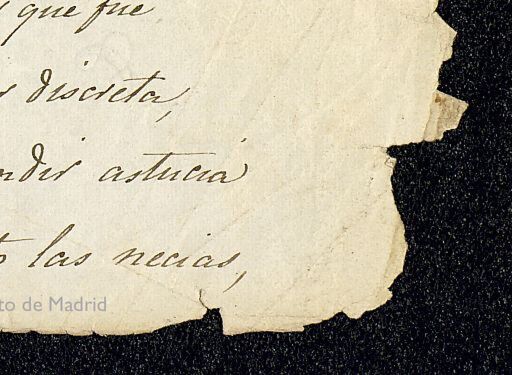 que fue
discreta,
ndir astucia
las necias,
to de Madrid